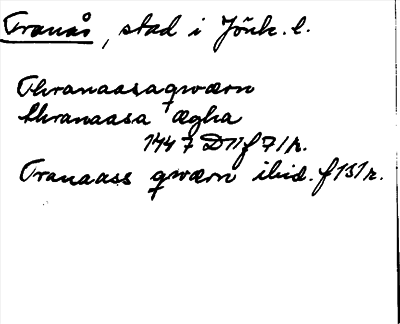 Tranås, stad i Jönk. l.
Thranaasaqwærn
thranaasa ægha
1447 D11 f 71 r.
Tranaass qwærn ibid. f 131 r.